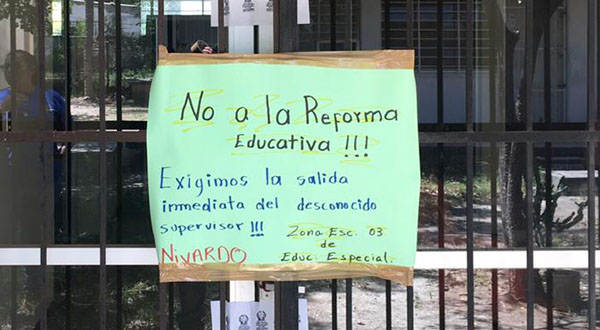 No a la Reforma
Educativa !!!
Exigimos la salida
inmediata del desconocido
supervisor !!!
NIVARDO
Zona Esc. 03
de
Educ. Especial.